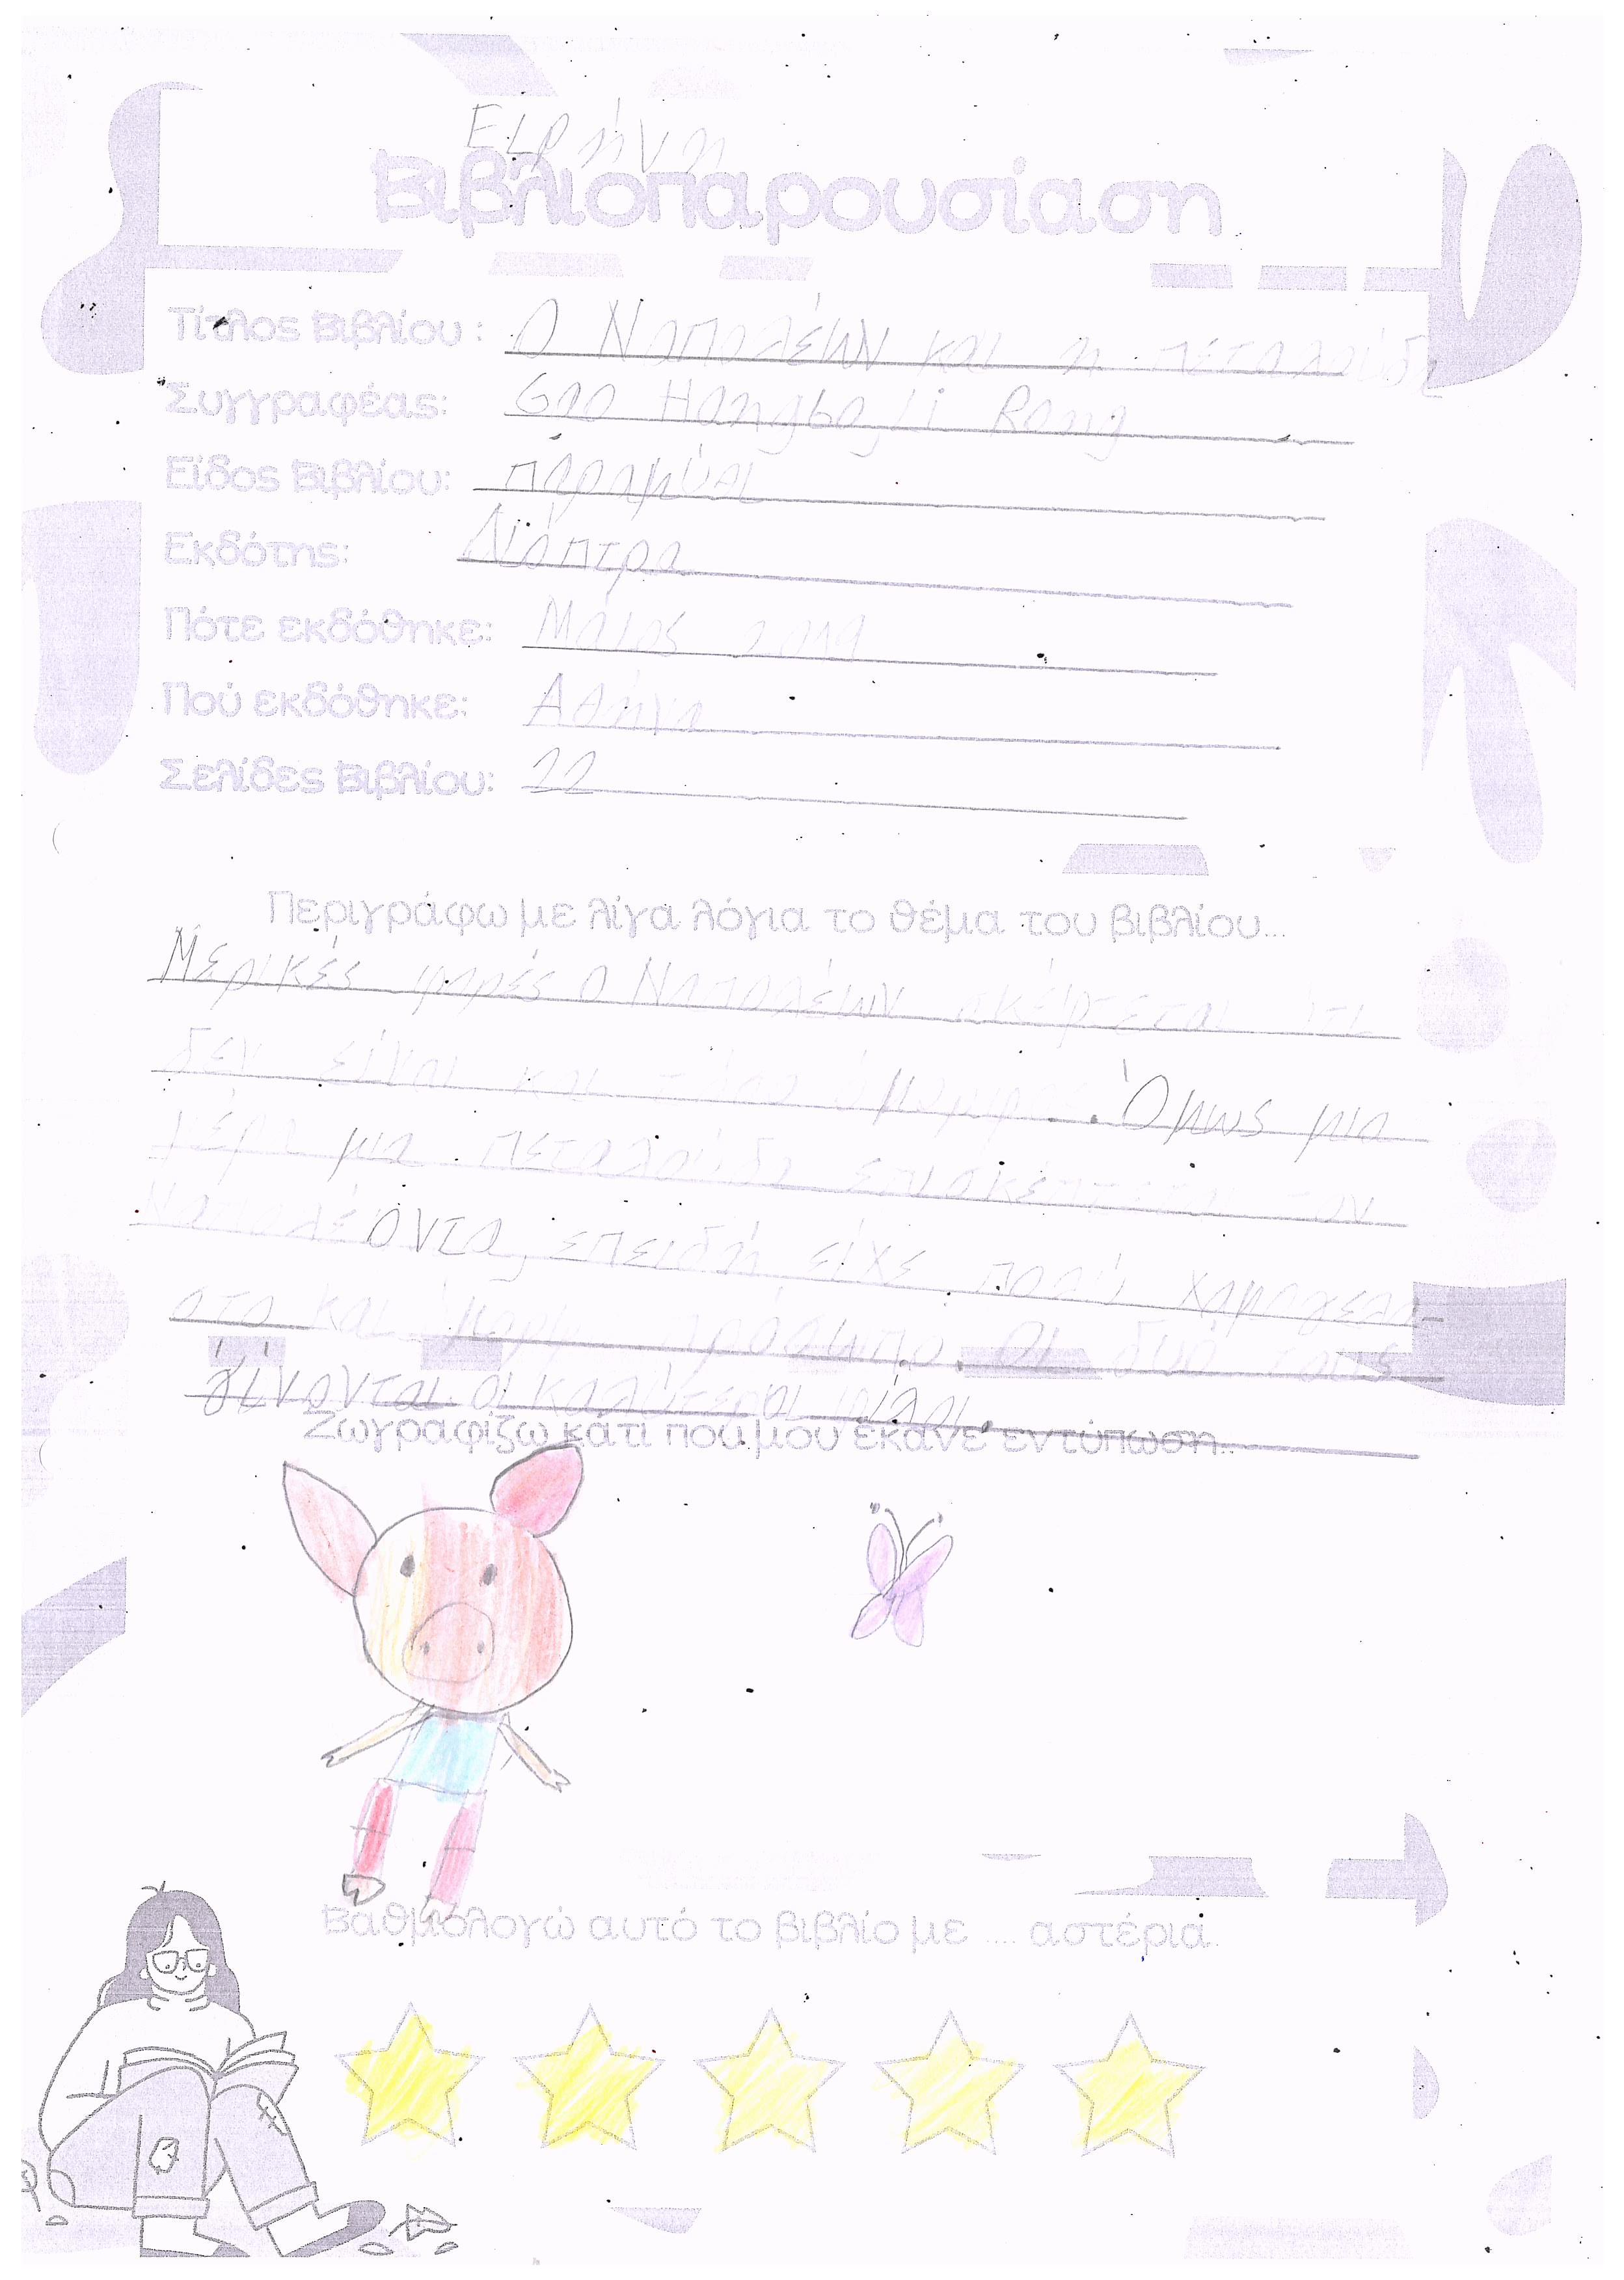 Ειρήνη
Βιβλιοπαρουσίαση
Τίτλος Βιβλίου: Ο Ναπολέων και η πεταλούδα
Συγγραφέας: Gao Hongbo, Li Rong
Είδος Βιβλίου: παραμύθι
Εκδότης: Διόπτρα
Πότε εκδόθηκε: Μάιος 2019
Πού εκδόθηκε: Αθήνα
Σελίδες Βιβλίου: 22
Περιγράφω με λίγα λόγια το θέμα του βιβλίου...
Μερικές φορές ο Ναπολέων σκέφτεται ότι
δεν είναι και τόσο όμορφος. Όμως μια
μέρα μια πεταλούδα επισκέπτεται τον
Ναπολέοντα, επειδή είχε πολύ χαμογελα-
στο και πρόσωπο. Οι δυό τους
γίνονται οι καλύτεροι φίλοι.
Ζωγραφίζω κάτι που μου έκανε εντύπωση...
Βαθμολογώ αυτό το βιβλίο με .... αστέρια.